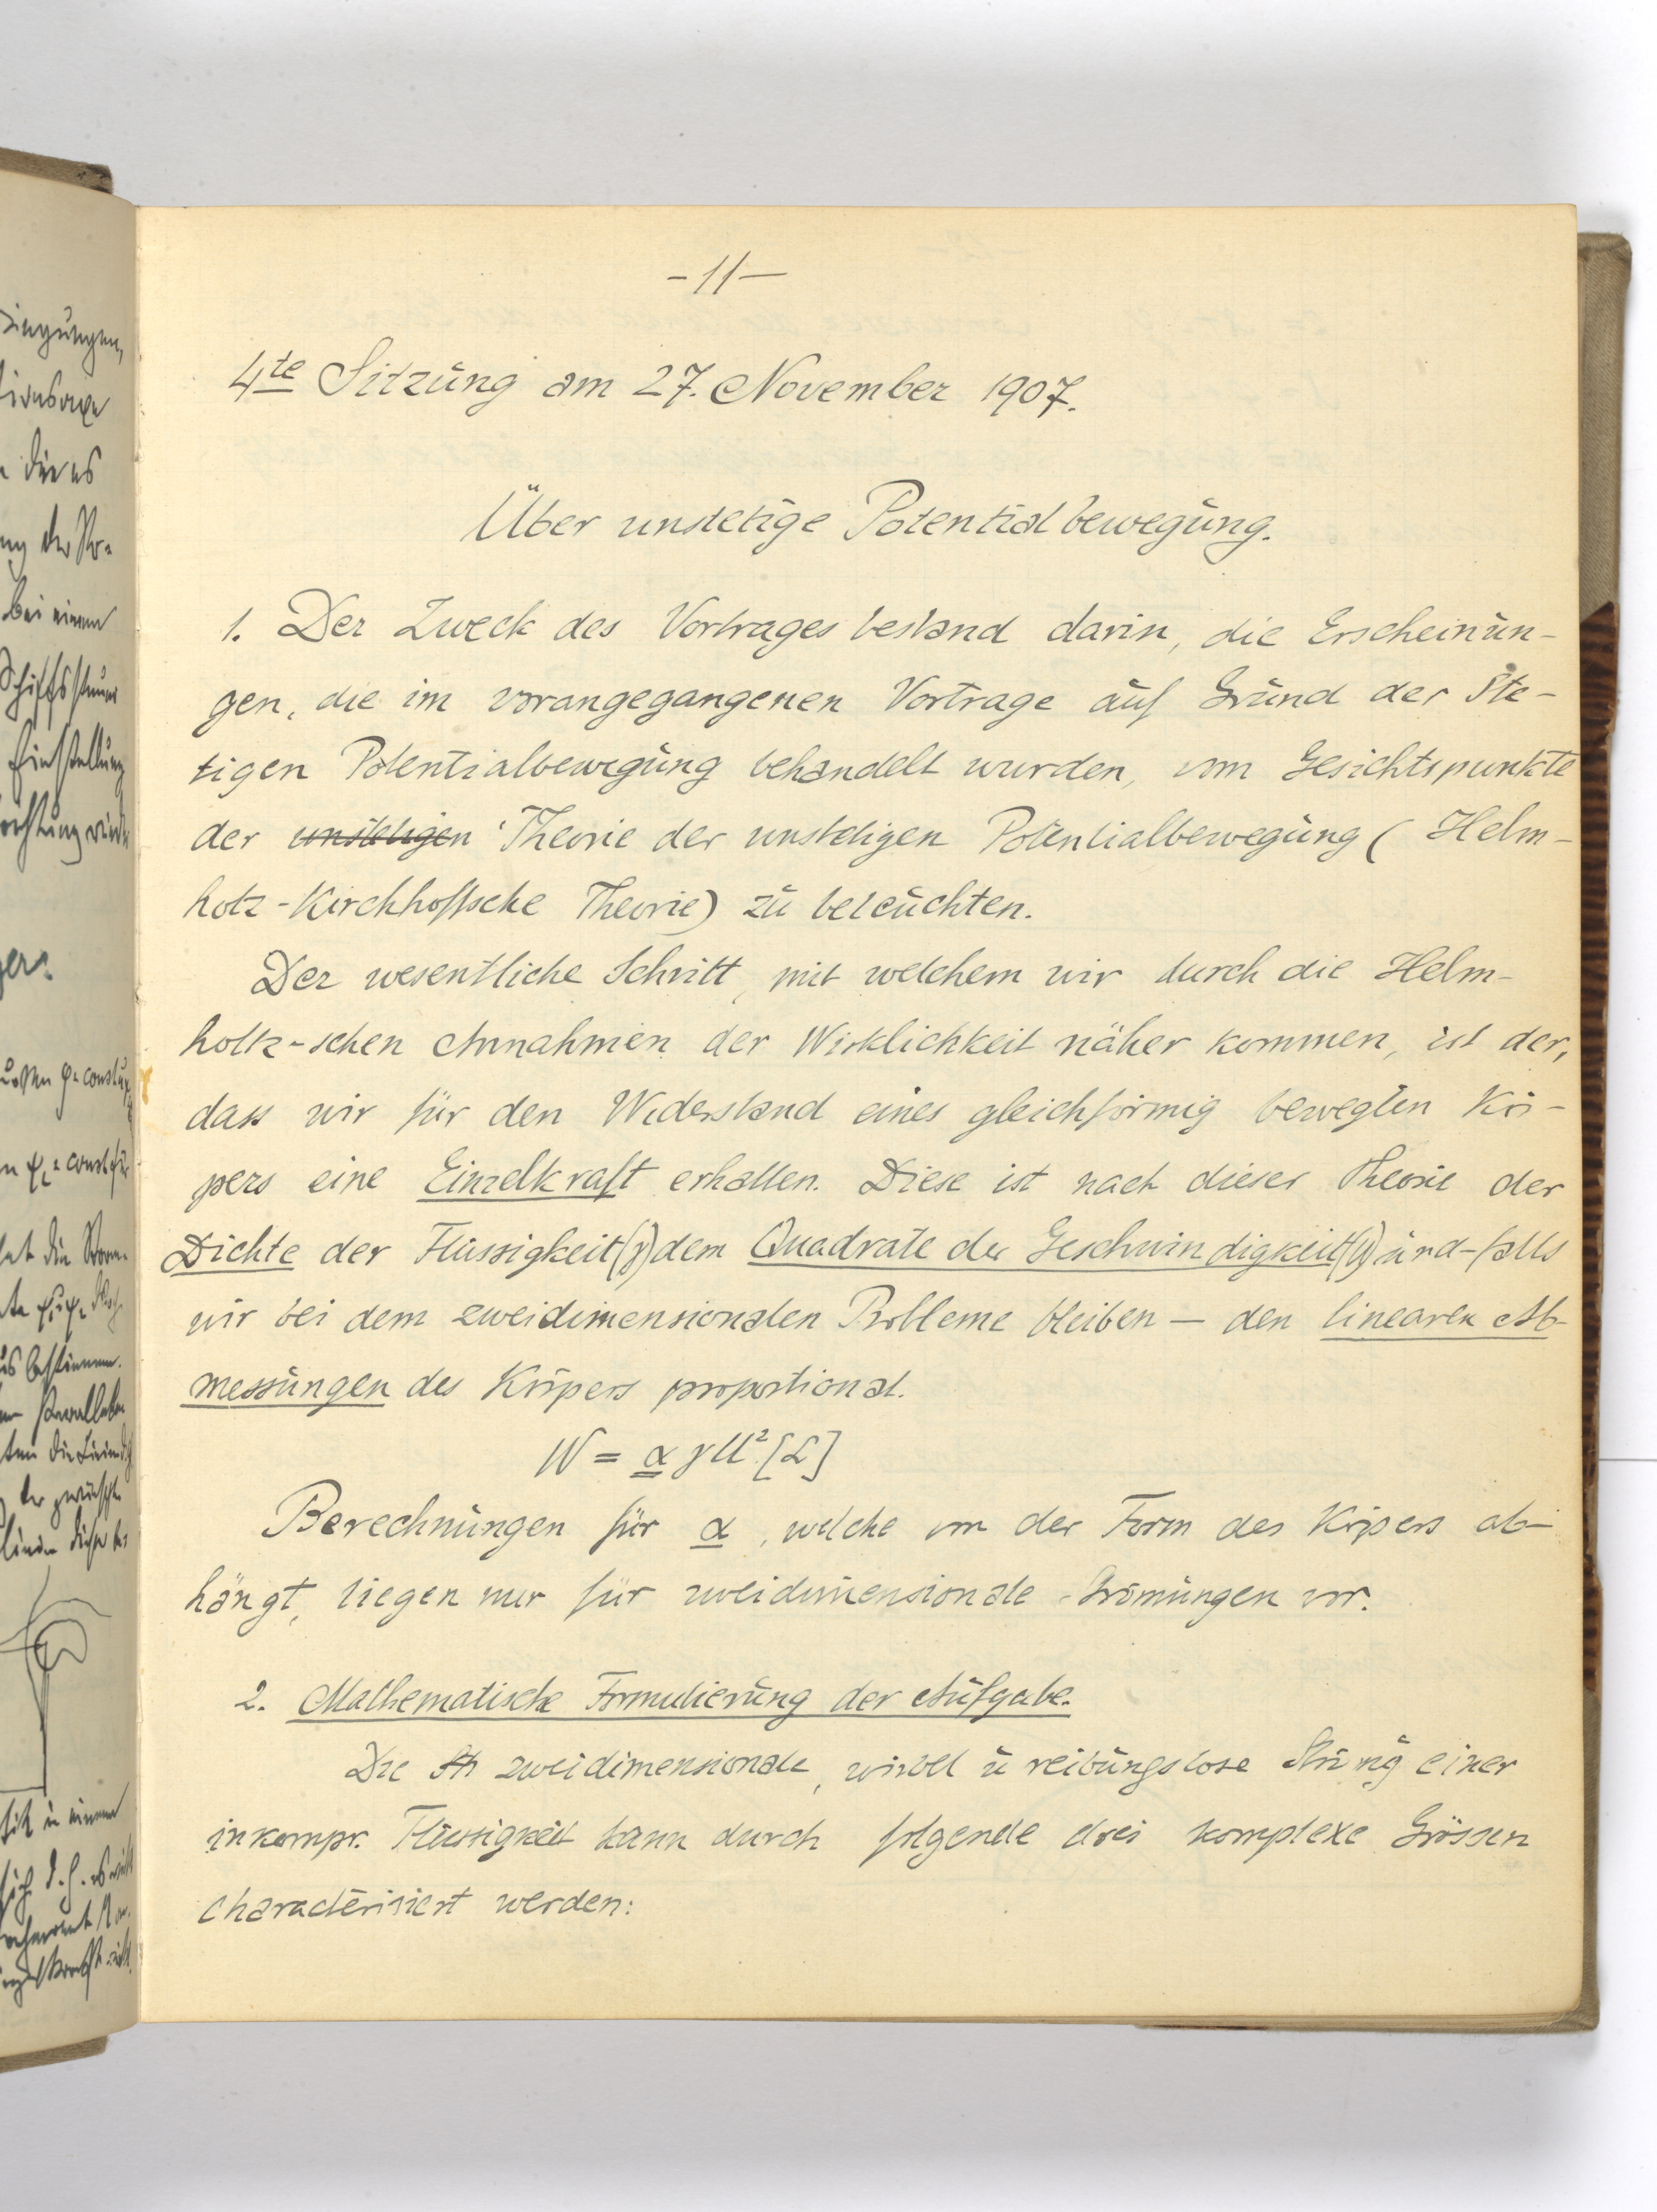 -11-
4te Sitzung am 27. November 1907.
Über unstetige Potentialbewegung.
1. Der Zweck des Vortrages bestand darin, die Erscheinun-
gen, die im vorangegangenen Vortrage auf Grund der Ste-
tigen Potentialbewegung behandelt wurden, vom Gesichtspunkte
der unstetigen Theorie der unstetigen Potentialbewegung (Helm-
holz-Kirchhoffsche Theorie) zu beleuchten.
Der wesentliche Schritt, mit welchem wir durch die Helm-
holtz-schen Annahmen der Wirklichkeit näher kommen, ist der,
dass wir für den Widerstand eines gleichförmig bewegten Kör-
pers eine Einzelkraft erhalten. Diese ist nach dieser Theorie der
Dichte der Flüssigkeit (γ) dem Quadrate der Geschwindigkeit (U) und - falls
wir bei dem zweidimensionalen Probleme bleiben — den linearen Ab-
messungen des Körpers proportional.
W = α γ U² [L]
Berechnungen für α, welche von der Form des Körpers ab-
hängt, liegen nur für zweidimensionale Strömungen vor.
2. Mathematische Formulierung der Aufgabe.
Die St zweidimensionale, wirbel u reibungslose Strömg einer
inkompr. Flüssigkeit kann durch folgende drei komplexe Grössen
characterisiert werden: